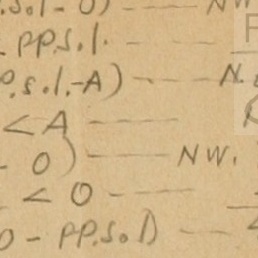 .s.o.l - O) —— NW
- PP.s.l. ——
P.s.l.-A) —— N.
< A ——
- O) —— NW.
< O ——
O - PP.s.l) ——